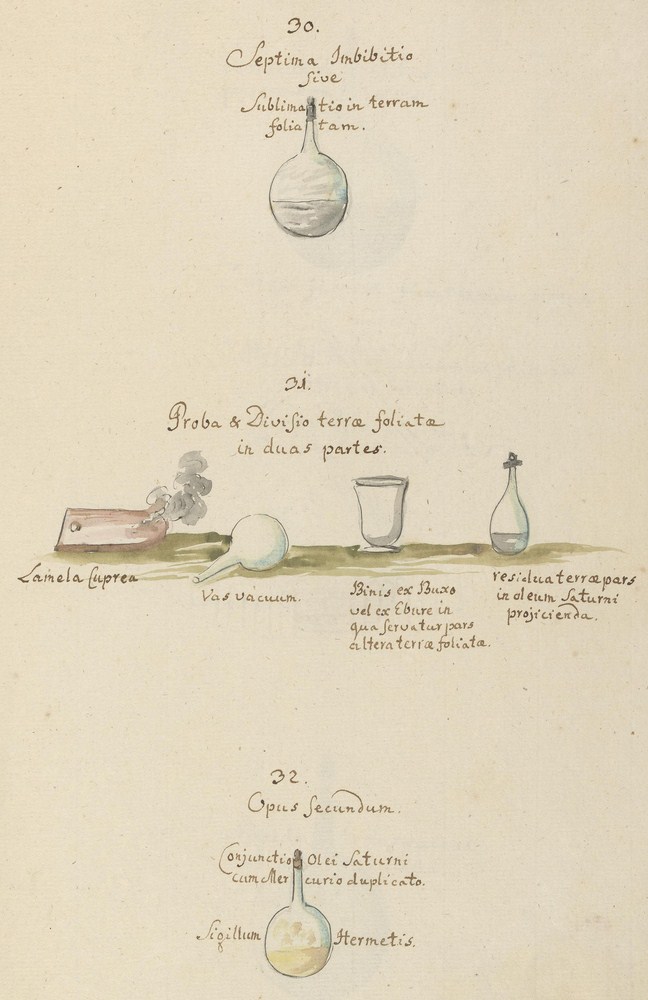 30.
Septima Imbibitio
sive
Sublimatio in terram
foliatam.
31.
Proba & Divisio terræ foliatæ
in duas partes.
Lamela Cuprea
Vas vacuum.
Binis ex Buxo
vel ex Ebure in
qua servatur pars
altera terræ foliatæ.
residua terræ pars
in oleum Saturni
projicienda.
32.
Opus secundum.
Conjunctio Olei Saturni
cum Mercurio duplicato.
Sigillum Hermetis.